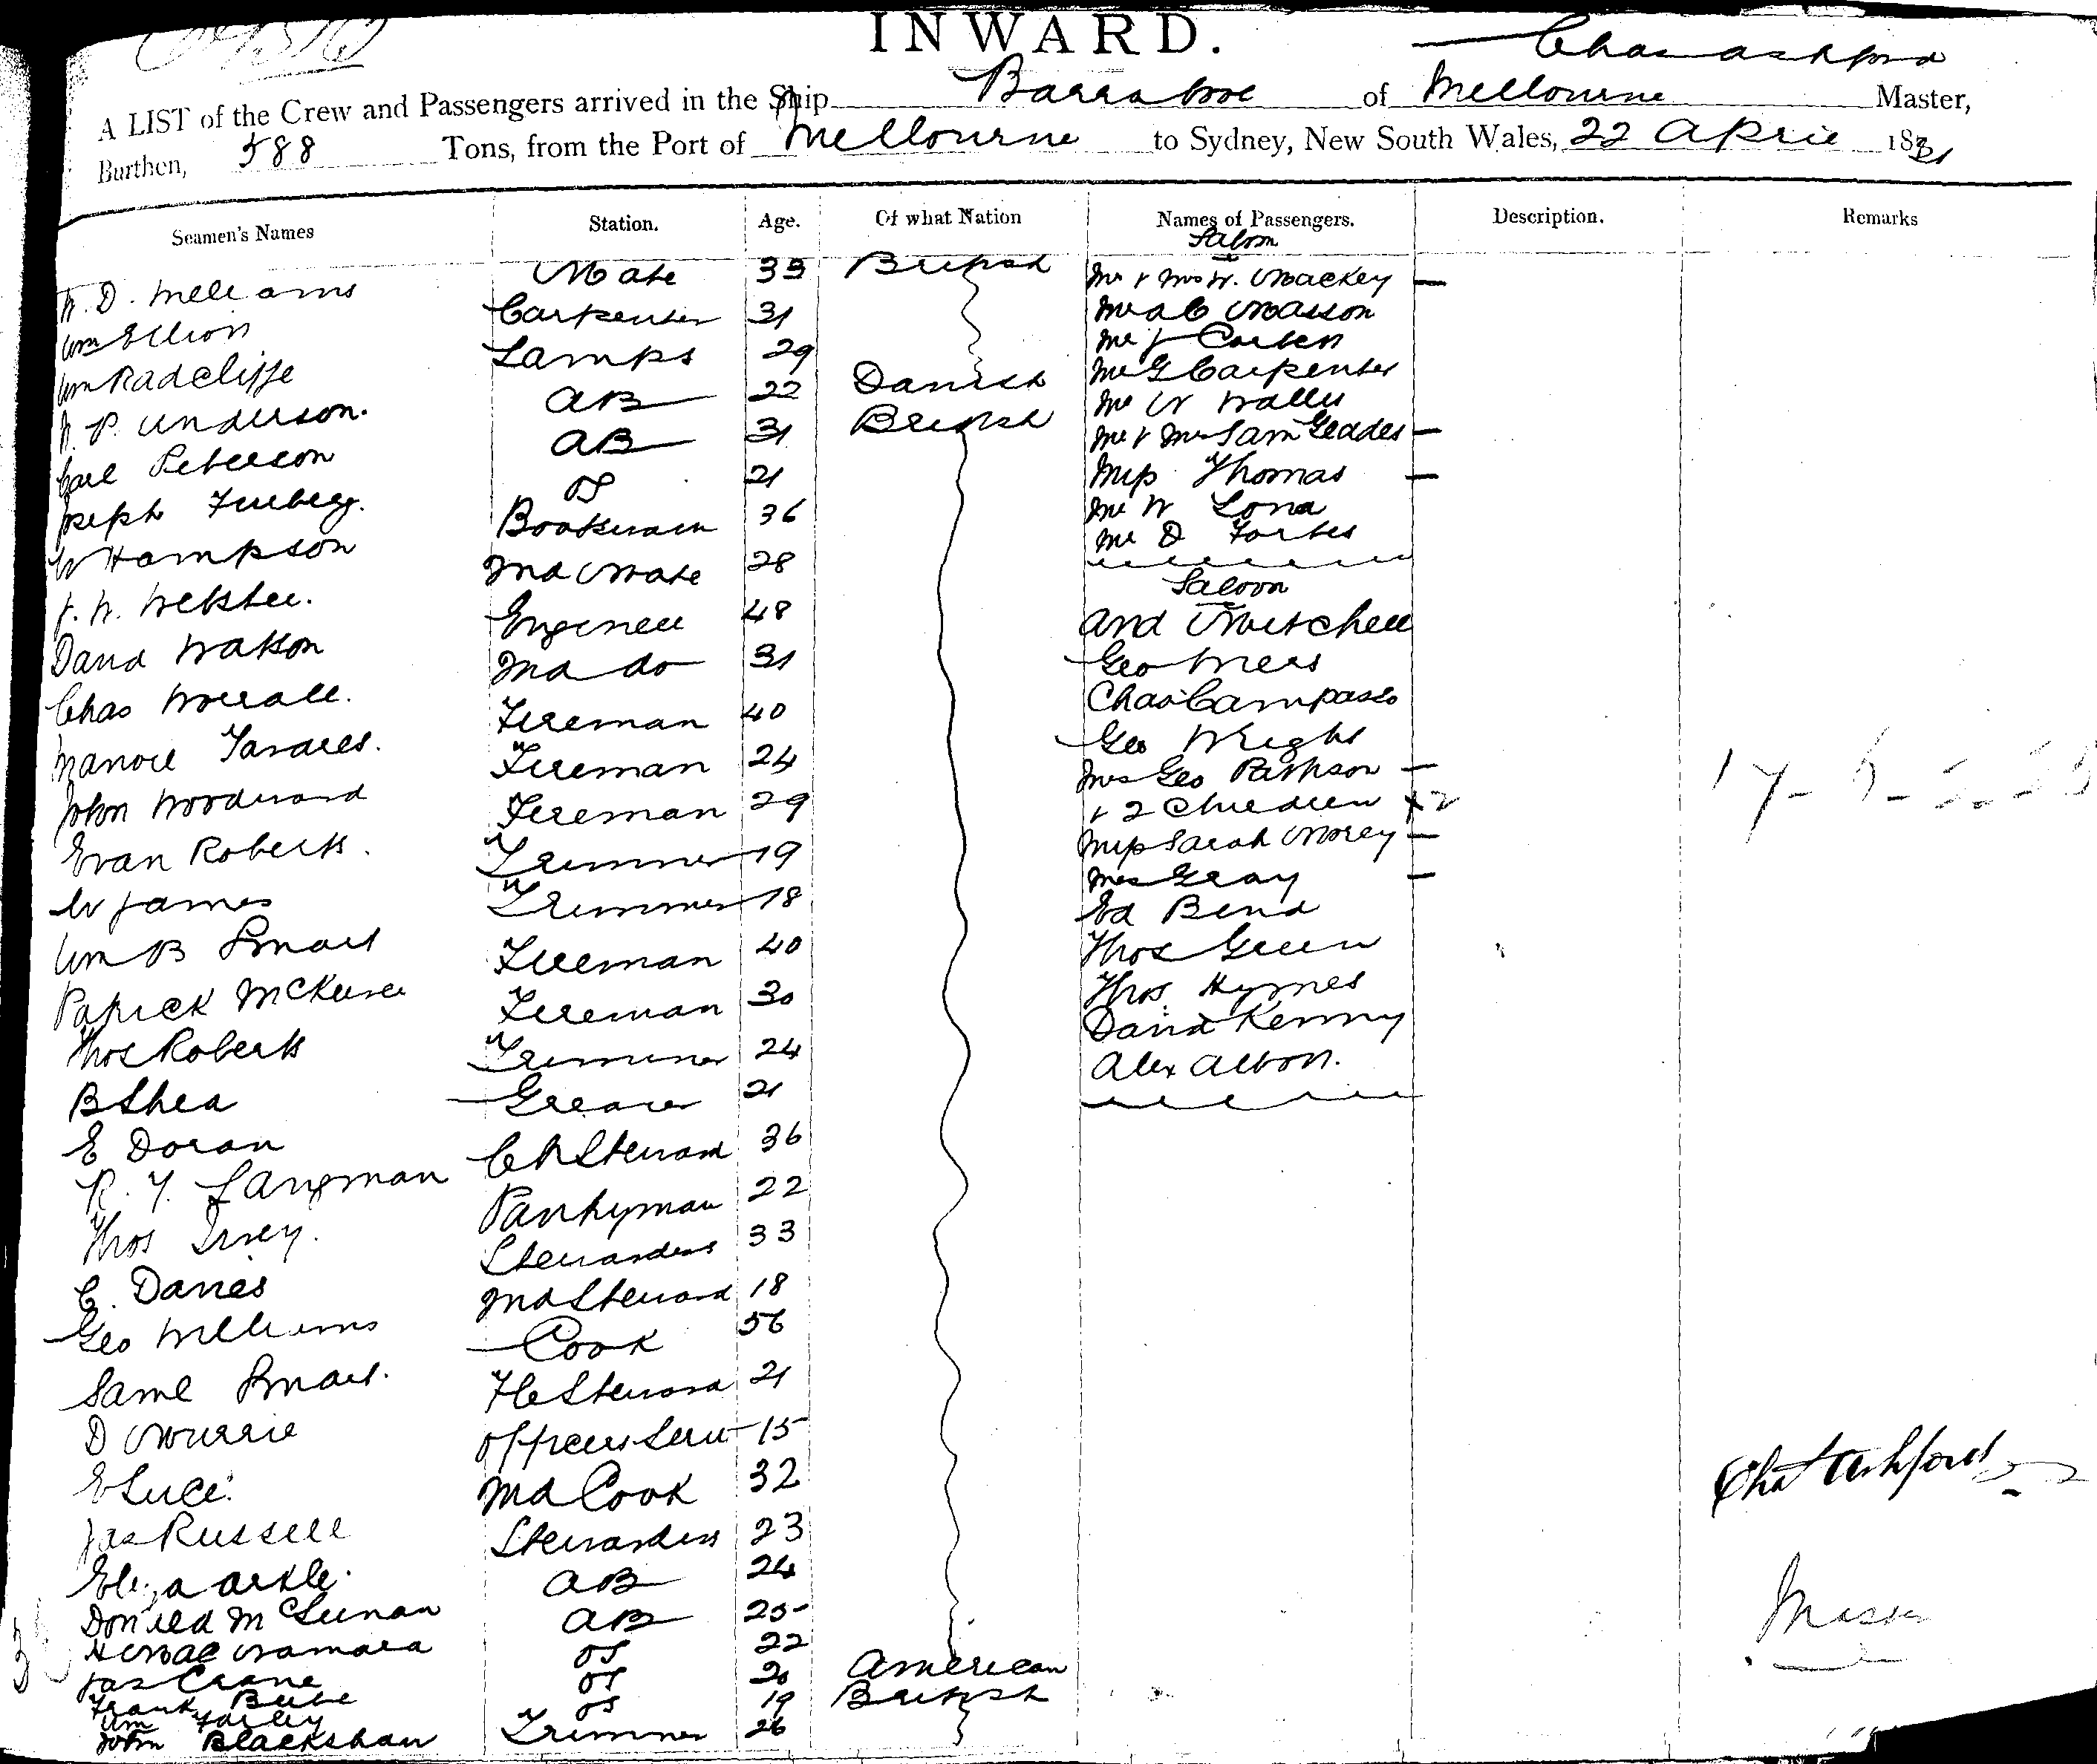 INWARD.
Chas Ashford
A LIST of the Crew and Passengers arrived in the Ship Barrabool of Melbourne Master,
Burthen, 588 Tons, from the Port of Melbourne to Sydney, New South Wales, 22 April 1881
Seamen's Names Station. Age. Of what Nation Names of Passengers. Description. Remarks
Saloon
W. D. Williams Mate 33 British Mr & Mrs W. Mackey —
Wm Ellison Carpenter 31 Mr A C Masson
Wm Radcliffe Lamps 29 Mr J
P. Anderson. AB 22 Danish Mr G Carpenter
Carl Peterson AB 31 British Mr W Waller
Joseph OS 21 Mr & Mrs Sam Geddes —
W Hampson Boatswain 36 Miss Thomas —
J. W. Webster. 2nd Mate 28 Mr W
David Watson Engineer 48 Mr D Forbes
Chas Worrall. 2nd do 31 Saloon
Manoel Tavares. Fireman 40 And Mitchell
John Woodward Fireman 24 Geo
Evan Roberts. Fireman 29 Chas
W James Trimmer 19 Geo Wright
Wm B Smart Trimmer 18 Mrs Geo —
Patrick Fireman 40 & 2 Children x 2
Thos Roberts Fireman 30 Miss Sarah Morey —
B Shea Trimmer 24 Mrs Gray —
E Doran Greaser 21 Ed Bend
R. J. Langman Ch Steward 36 Thos Green
Thos Pantryman 22 Thos Hymes
C. Davies Stewardess 33 David Kenny
Geo Williams 2nd Steward 18 Alex
Saml Smart. Cook 56
D Murrie F C Steward 21
E Luce. Officers Serv 15
Jas Russell 2nd Cook 32
Eliza Arkle. Stewardess 23
Donald McLennan AB 24
H Macnamara AB 25
Jas Crane OS 22
Frank Beebe OS 20 American
Wm Farley OS 19 British
John Blackshaw Trimmer 26
Chas Ashford
Master